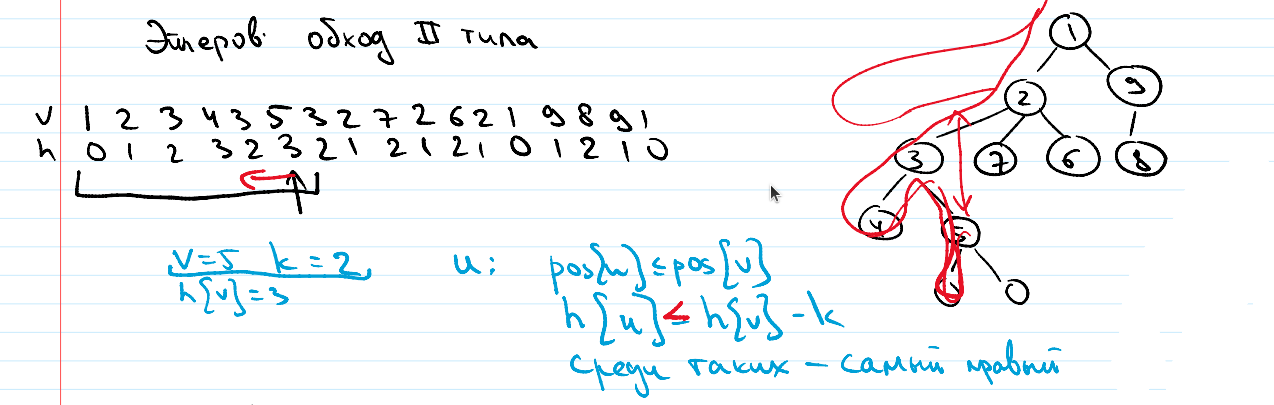 Эйлеров обход II типа
v 1 2 3 4 3 5 3 2 7 2 6 2 1 9 8 9 1
h 0 1 2 3 2 3 2 1 2 1 2 1 0 1 2 1 0
v=5 k=2
h[v]=3
u: pos[u]≤pos[v]
h[u]≤h[v]-k
среди таких - самый правый
1
2 9
3 7 6 8
4 5